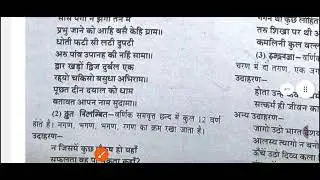 सीस पगा न झगा तन में
प्रभु जाने को आहि बसै केहि ग्रामा॥
धोती फटी सी लटी दुपटी
अरु पांव उपानह की नहिं सामा॥
द्वार खड़ो द्विज दुर्बल एक
रह्यो चकिसो बसुधा अभिरामा॥
पूछत दीन दयाल को धाम
बतावत आपन नाम सुदामा॥
(2) द्रुत विलम्बित–वर्णिक समवृत्त छन्द में कुल 12 वर्ण
होते हैं। नगण, भगण, भगण, रगण का क्रम रखा जाता है।
उदाहरण–
न जिसमें कुछ पौरुष हो यहाँ
सफलता वह पा सकता कहाँ?
गगन था कुछ लोहित
तरु शिखा पर थी अ
कमलिनी कुल वल्ल
(3) इन्द्रवज्रा–वर्णिक
चरण में दो तगण, एक जग
उदाहरण–
होता उन्हें
सत्कर्म ही जीवन का
अन्य उदाहरण–
जागो उठो भारत देश
आलस्य त्यागो न बनो
ऊँचे उठो दिव्य कला